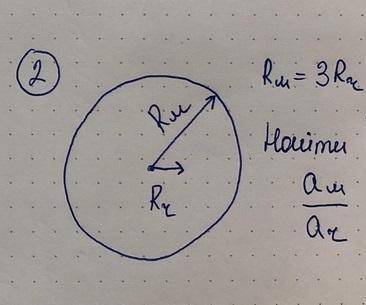 2
Rм
Rч
Rм = 3Rч
Найти
aм
aч